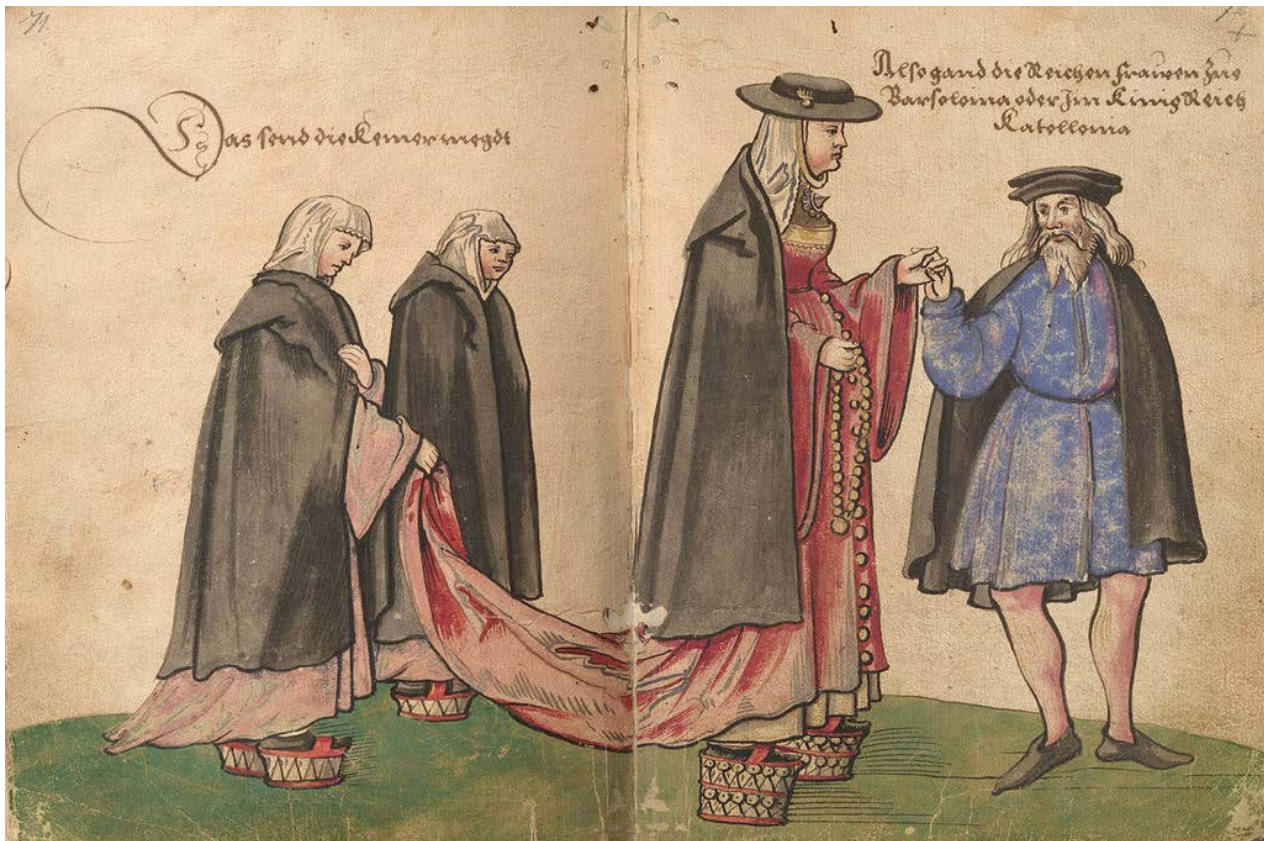 71.
Das send die Kemer megdt
Also gand die Reichen frawen zue
Barselonia oder Jm Kinig Reich
Katellonia